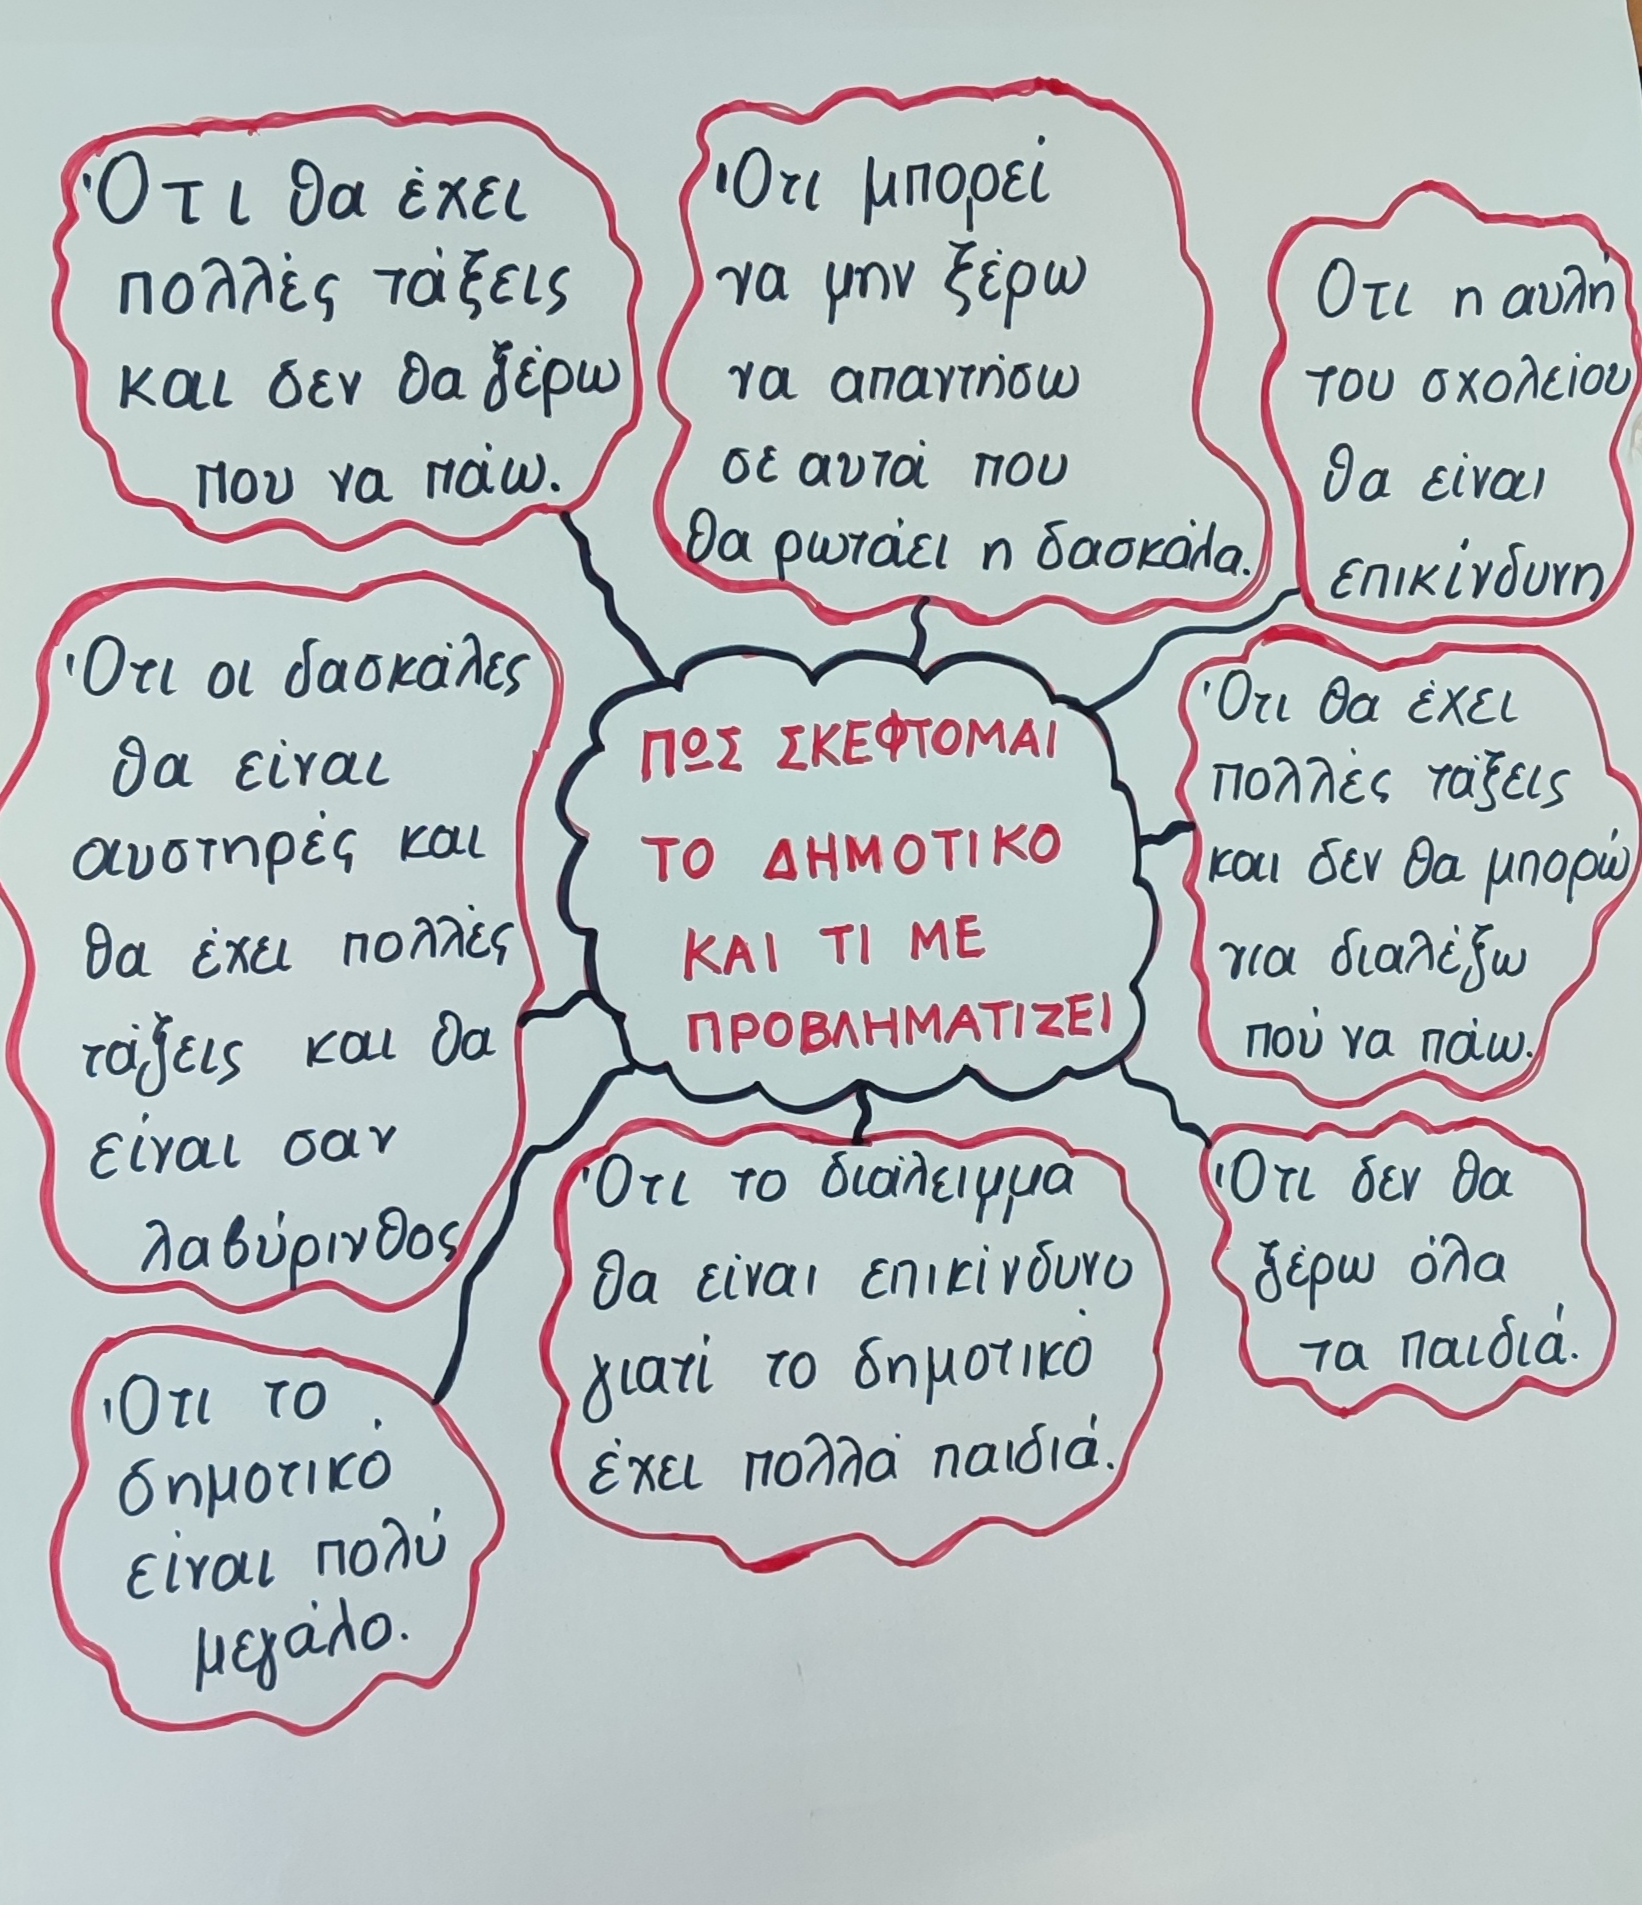 Ότι θα έχει
πολλές τάξεις
και δεν θα ξέρω
που να πάω.
Ότι μπορεί
να μην ξέρω
να απαντήσω
σε αυτά που
θα ρωτάει η δασκάλα.
Οτι η αυλή
του σχολείου
θα είναι
επικίνδυνη
Ότι οι δασκάλες
θα είναι
αυστηρές και
θα έχει πολλές
τάξεις και θα
είναι σαν
λαβύρινθος
ΠΩΣ ΣΚΕΦΤΟΜΑΙ
ΤΟ ΔΗΜΟΤΙΚΟ
ΚΑΙ ΤΙ ΜΕ
ΠΡΟΒΛΗΜΑΤΙΖΕΙ
Ότι θα έχει
πολλές τάξεις
και δεν θα μπορώ
για διαλέξω
πού να πάω.
Ότι το
δημοτικό
είναι πολύ
μεγάλο.
Ότι το διάλειμμα
θα είναι επικίνδυνο
γιατί το δημοτικό
έχει πολλά παιδιά.
Ότι δεν θα
ξέρω όλα
τα παιδιά.